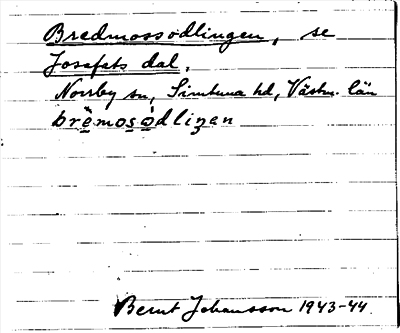 Bredmossodlingen, se
Josafats dal.
Norrby sn, Simtuna hd, Västm. län
brémosódliŋen
Bernt Johansson 1943-44.